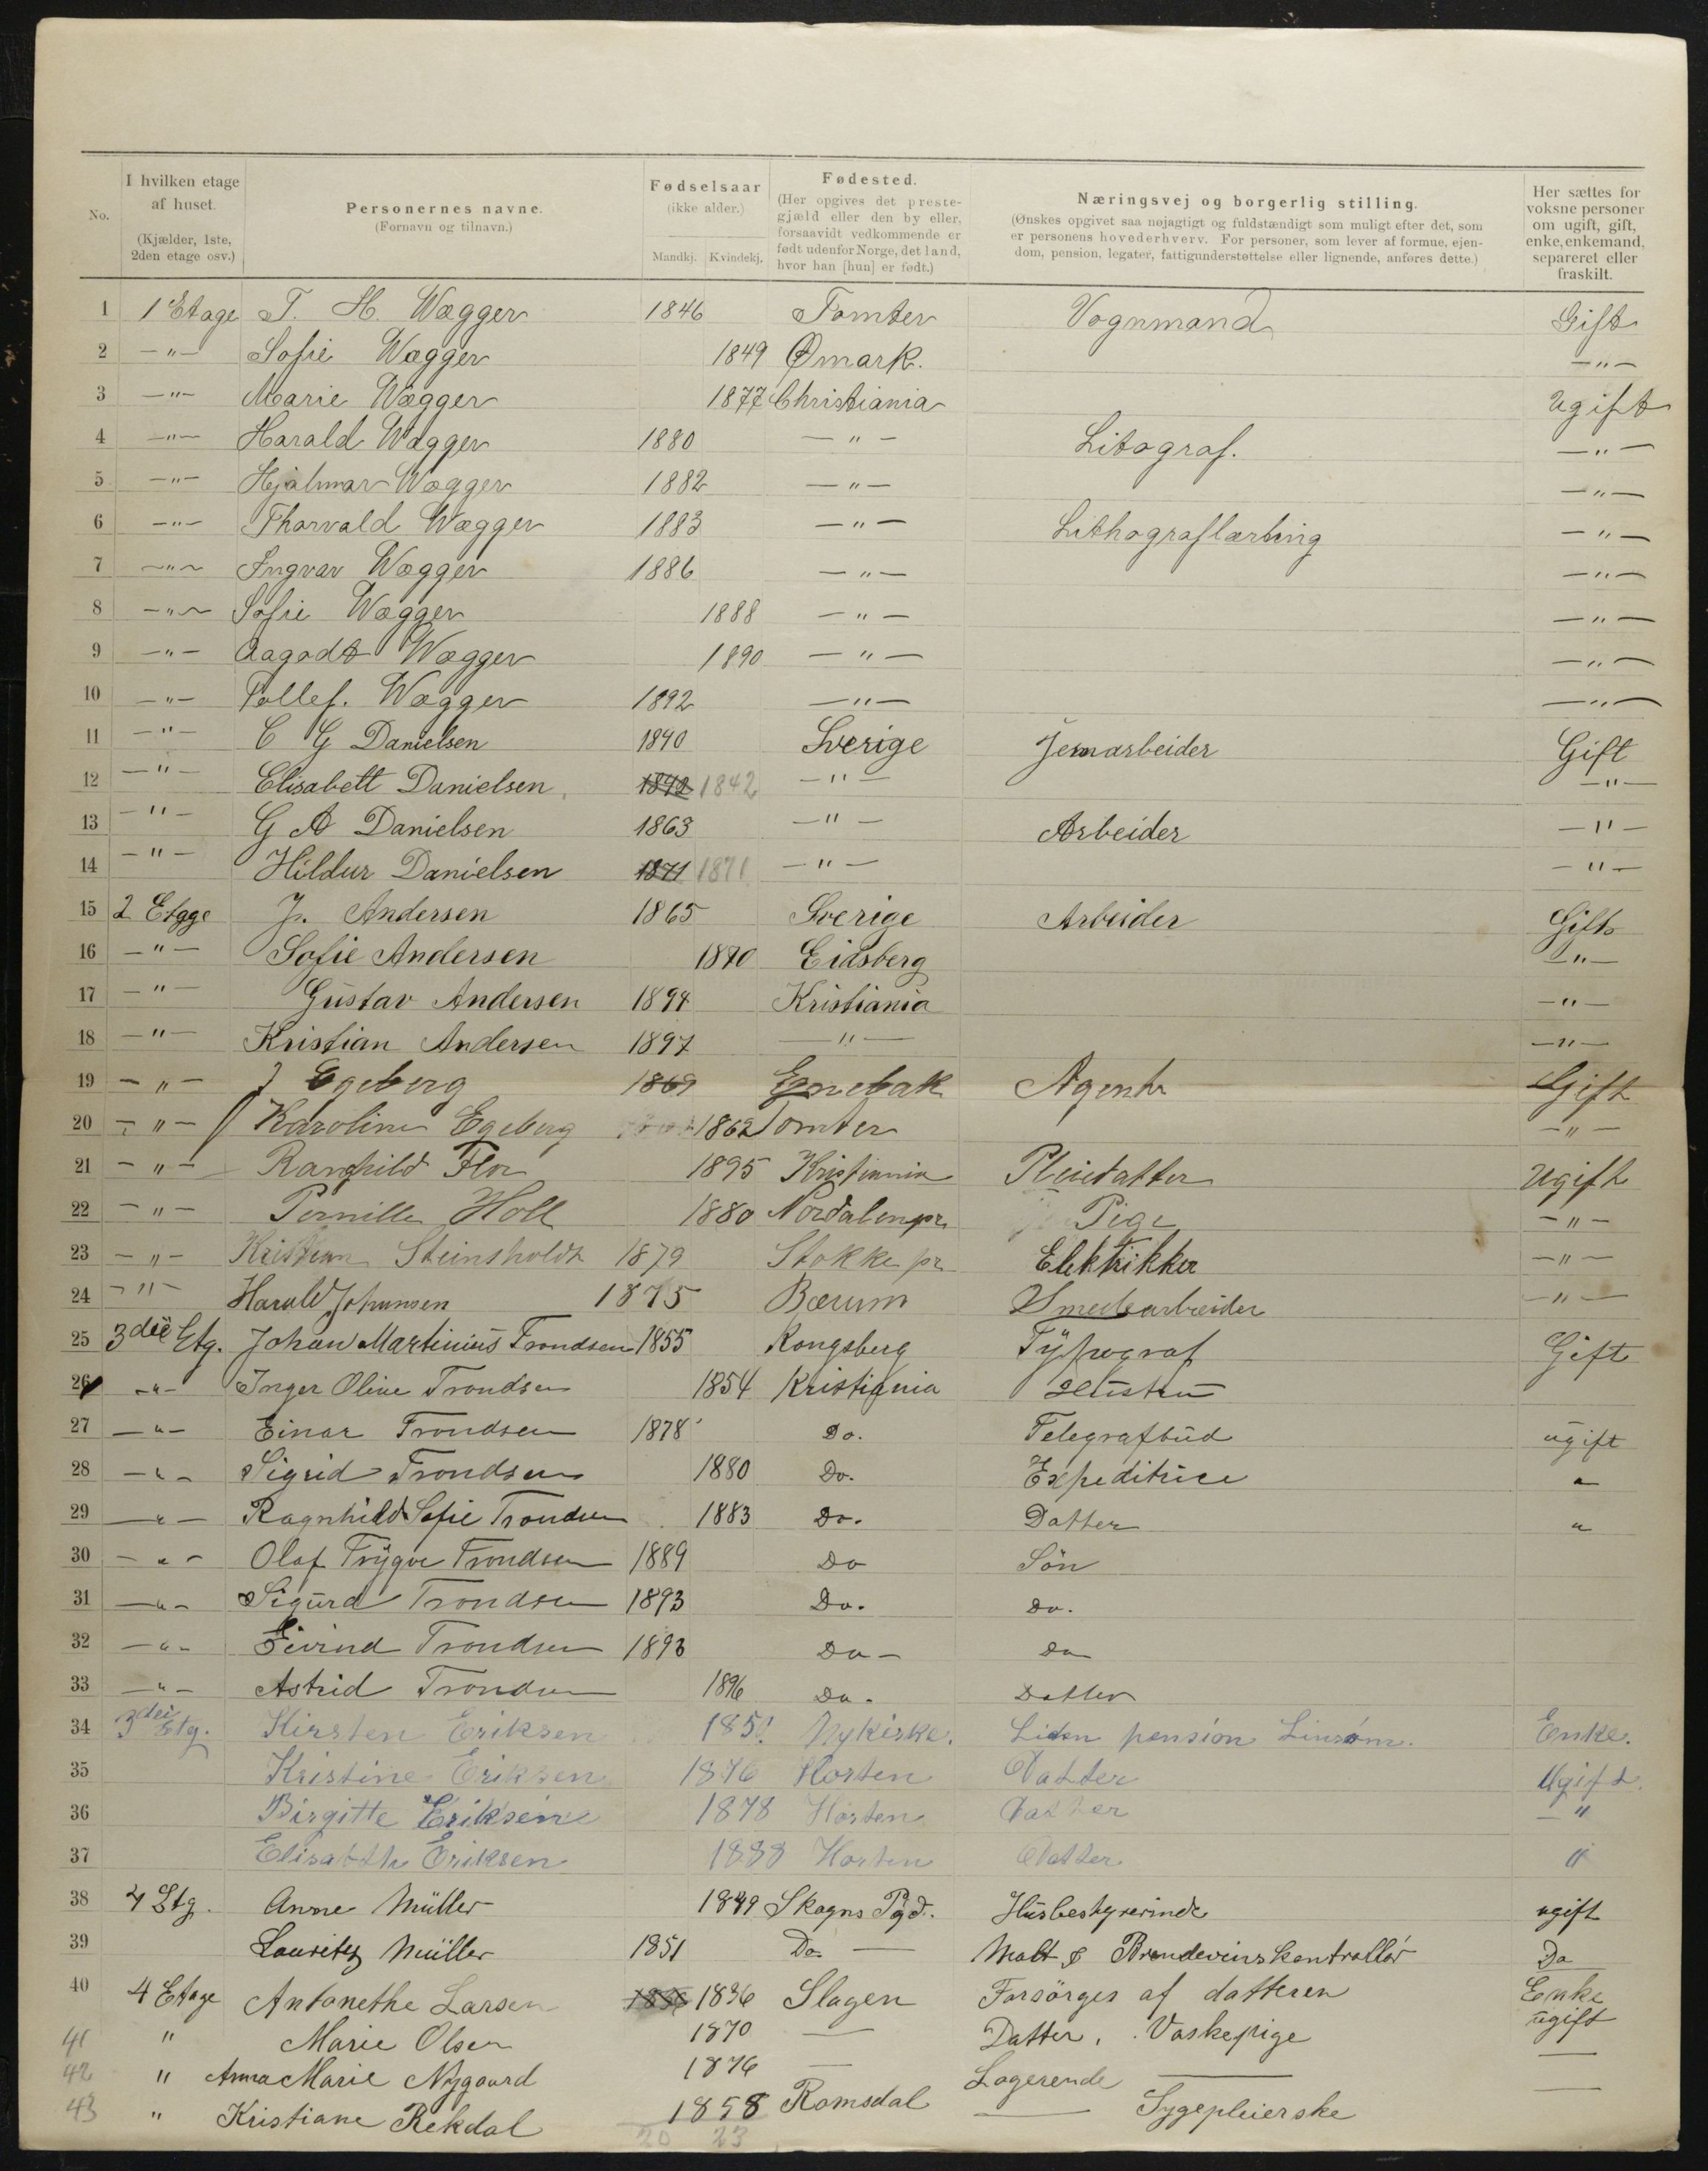 No. I hvilken etage af huset. (Kjælder, 1ste, 2den etage osv.) Personernes navne. (Fornavn og tilnavn.) Fødselsaar (ikke alder.) Mandkj. Kvindekj. Fødested. (Her opgives det prestegjæld eller den by eller, forsaavidt vedkommende er født udenfor Norge, det land, hvor han [hun] er født.) Næringsvej og borgerlig stilling. (Ønskes opgivet saa nøjagtigt og fuldstændigt som muligt efter det, som er personens hovederhverv. For personer, som lever af formue, ejendom, pension, legater, fattigunderstøttelse eller lignende, anføres dette.) Her sættes for voksne personer om ugift, gift, enke, enkemand, separeret eller fraskilt.
1 1 Etage T. H. Wægger 1846 Tomter Vognmand Gift
2 —"— Sofie Wægger 1849 Ømark. —"—
3 —"— Marie Wægger 1877 Christiania Ugift
4 —"— Harald Wægger 1880 —"— Litograf. —"—
5 —"— Hjalmar Wægger 1882 —"— —"—
6 —"— Thorvald Wægger 1883 —"— Lithograflærling —"—
7 —"— Ingvar Wægger 1886 —"— —"—
8 —"— Sofie Wægger 1888 —"— —"—
9 —"— Aagodt Wægger 1890 —"— —"—
10 —"— Tollef. Wægger 1892 —"— —"—
11 —"— C G Danielsen 1840 Sverige Jernarbeider Gift
12 —"— Elisabett Danielsen 1842 1842 —"— —"—
13 —"— G A Danielsen 1863 —"— Arbeider —"—
14 —"— Hildur Danielsen 1871 1871 —"— —"—
15 2 Etage J. Andersen 1865 Sverige Arbeider Gift
16 —"— Sofie Andersen 1870 Eidsberg —"—
17 —"— Gustav Andersen 1894 Kristiania —"—
18 —"— Kristian Andersen 1897 —"— —"—
19 —"— J Egeberg 1869 Enebak Agent Gift
20 —"— Karoline Egeberg 1862 Tomter —"—
21 —"— Ranghild Flor 1895 Kristiania Pleiedatter Ugift
22 —"— Pernille Holl 1880 Nordalen pr. Pige —"—
23 —"— Kristian Steinsholdt 1879 Stokke pr. Elektrikker —"—
24 —"— Harald Johansen 1875 Bærum Smedearbeider —"—
25 3die Etg. Johan Martinius Trondsen 1855 Kongsberg Typograf Gift
26 —"— Inger Oline Trondsen 1854 Kristiania Hustru
27 —"— Einar Trondsen 1878 Do. Telegrafbud ugift
28 —"— Sigrid Trondsen 1880 Do. Expeditrice "
29 —"— Ragnhild Sofie Trondsen 1883 Do. Datter "
30 —"— Olaf Trygve Trondsen 1889 Do Søn
31 —"— Sigurd Trondsen 1893 Do. Do.
32 —"— Eivind Trondsen 1893 Do — Do
33 —"— Astrid Trondsen 1896 Do. Datter
34 3dei Etg. Kirsten Eriksen Nykirke. Liden pension Enke.
35 Kristine Eriksen 1876 Horten Datter Ugift.
36 Birgitte Eriksen 1878 Horten Datter —"
37 Elisabeth Eriksen 1888 Horten Datter "
38 4 Etg. Anne Müller 1849 Skogns Pgd. Husbestyrerinde ugift
39 Lauritz Müller 1851 Do — Malt & Brændevinskontrollør Do
40 4 Etage Antonethe Larsen 1836 1836 Slagen Forsørges af datteren Enke
41 " Marie Olsen 1870 — Datter. Vaskepige ugift
42 " Anna Marie Nygaard 1876 — Logerende — —
43 " Kristiane Rekdal 1858 Romsdal — Sygepleierske —
20 23